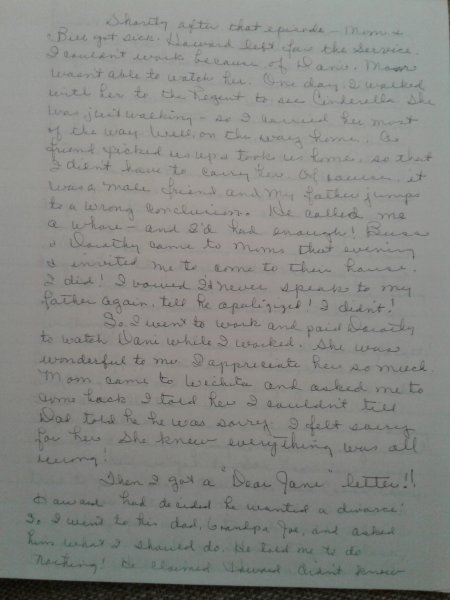 Shortly after that episode - Mom &
Bill got sick. Howard left for the Service.
I couldn't work because of Dani. Mom
wasn't able to watch her. One day, I walked
with her to the Regent to see Cinderella. She
was just walking - so I carried her most
of the way. Well, on the way home, a
friend picked us up & took us home, so that
I didn't have to carry her. Of course, it
was a male friend and my father jumps
to a wrong conclusion. He called me
a whore - and I'd had enough! Buss
& Dorothy came to Moms that evening
& invited me to come to their house.
I did! I vowed I'd never speak to my
father again, till he apologized! I didn't!
So I went to work and paid Dorothy
to watch Dani while I worked. She was
wonderful to me. I appreciate her so much.
Mom came to Wichita and asked me to
come back. I told her I couldn't till
Dad told he he was sorry. I felt sorry
for her. She knew everything was all
wrong!
Then I got a "Dear Jane" letter!!
Howard had decided he wanted a divorce!
So I went to his dad, Grandpa Joe, and asked
him what I should do. He told me to do
nothing! He claimed Howard didn't know